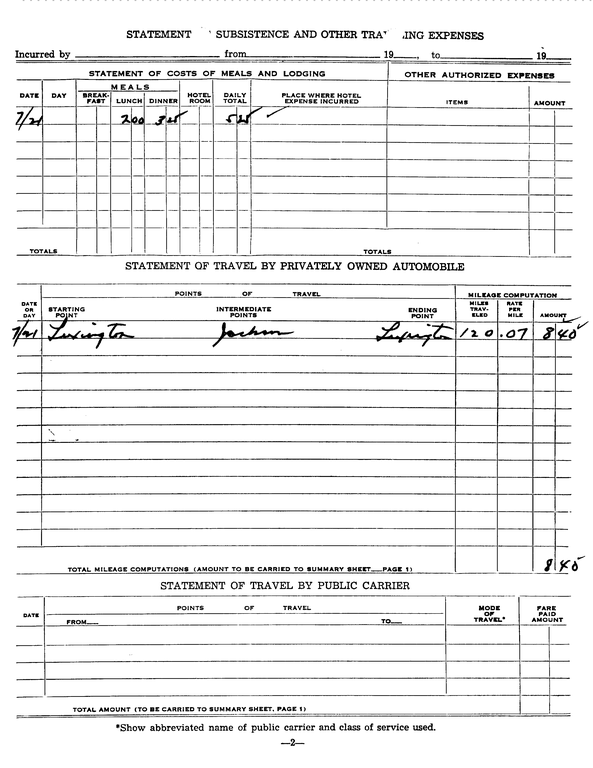 STATEMENT SUBSISTENCE AND OTHER TRA ING EXPENSES
Incurred by from 19 , to 19
STATEMENT OF COSTS OF MEALS AND LODGING OTHER AUTHORIZED EXPENSES
DATE DAY MEALS HOTEL ROOM DAILY TOTAL PLACE WHERE HOTEL EXPENSE INCURRED ITEMS AMOUNT
BREAK-FAST LUNCH DINNER
7/21 2 00 3 25 5 25
TOTALS TOTALS
STATEMENT OF TRAVEL BY PRIVATELY OWNED AUTOMOBILE
DATE OR DAY POINTS OF TRAVEL MILEAGE COMPUTATION
STARTING POINT INTERMEDIATE POINTS ENDING POINT MILES TRAV-ELED RATE PER MILE AMOUNT
7/21 Lexington Jackson Lexington 120 .07 8 40
TOTAL MILEAGE COMPUTATIONS (AMOUNT TO BE CARRIED TO SUMMARY SHEET PAGE 1) 8 40
STATEMENT OF TRAVEL BY PUBLIC CARRIER
DATE POINTS OF TRAVEL MODE OF TRAVEL* FARE PAID AMOUNT
FROM TO
TOTAL AMOUNT (TO BE CARRIED TO SUMMARY SHEET, PAGE 1)
*Show abbreviated name of public carrier and class of service used.
—2—